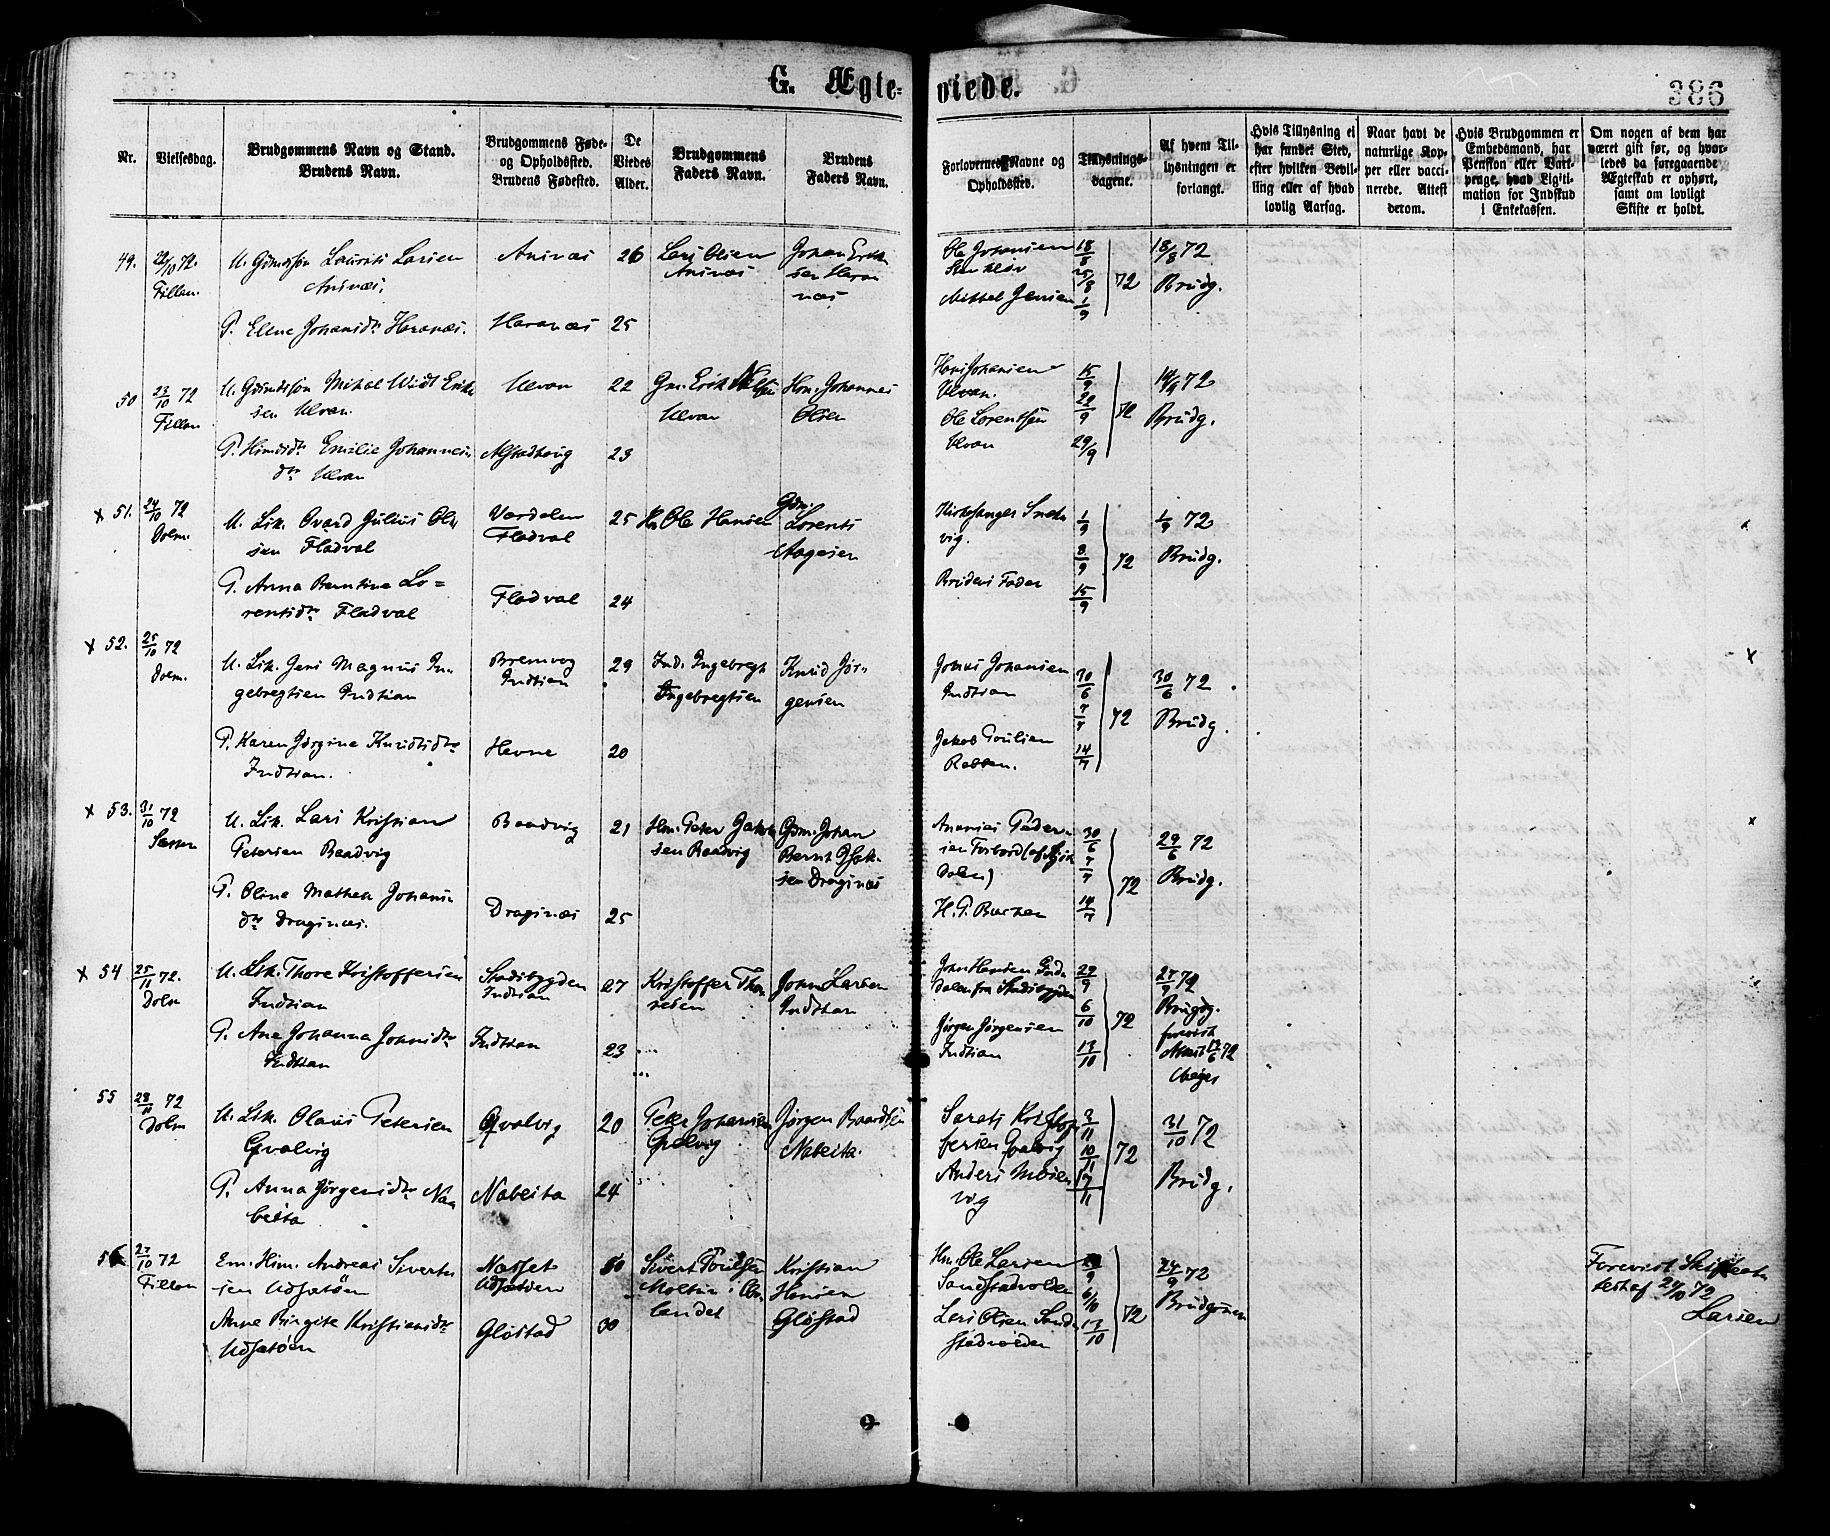 G. Ægte=
viede.
386
Nr.
Vielsesdag.
Brudgommens Navn og Stand.
Brudens Navn.
Brudgommens Føde-
og Opholdssted.
Brudens Fødested.
De
Viedes
Alder.
Brudgommens
Faders Navn.
Brudens
Faders Navn.
Forlovernes Navne og
Opholdssted.
Tillysnings-
dagene.
Af hvem Til-
lysningen er
forlangt.
Hvis Tillysning ei
har fundet Sted,
efter hvilken Bevil-
ling eller af hvad
lovlig Aarsag.
Naar havt de
naturlige Kop-
per eller vacci-
nerede. Attest
derom.
Hvis Brudgommen er
Embedsmand, har
Pension eller Vart-
penge, hvad Ligiti-
mation for Indskud
i Enkekassen.
Om nogen af dem har
været gift før, og hvor-
ledes da foregaaende
Ægteskab er ophørt,
samt om lovligt
Skifte er holdt.
49.
22/10 72.
Fillan.
U. Gdmdssøn Laurits Larsen
Ansnæs.
P. Ellene Johansdtr Haranæs.
Ansnæs
Haranæs
26
25
Lars Olsen
Ansnæs
Johan Erik
sen Hara
næs
Ole Johansen
Mikkel Jensen
18/8
25/8
1/9
72
18/8 72
Brudg.
50
23/10 72
Fillan
U. Gdmdssøn Mikal Erik
sen Ulvan.
P. Hmdsdtr Emilie Johannes
dtr Ulvan
Ulvan
22
23
Gm. Erik
Ulvan
Hm. Johannes
Olsen
Hans Johansen
Ulvan.
Ole Lorentsen
Ulvan
15/9
22/9
29/9
72
14/9 72
Brudg.
x 51.
24/10 72
Dolm.
U. Lsk. Ovard Julius Ol
sen Fladval
P. Anna Berntine Lo=
rentsdtr Fladval
Værdalen
Fladval
Fladval
25
24
Hm Ole Hansen
Gdm.
Lorents
Aagesen
Kirkesanger Snek
vig.
Brudens Fader
1/9
8/9
15/9
72
1/9 72
Brudg.
x 52.
25/10 72
Dolm.
U. Lsk. Jens Magnus In
gebregtsen Indtian
P. Karen Jørgine Knudtsdtr
Indtian.
Bremvog
Indtian
Hevne
29
20
Ind. Ingebregt
Ingebregtsen
Knud Jør
gensen
Jonas Johansen
Indtian
Jakob Poulsen
Rabben.
30/6
7/7
14/7
72
30/6 72
Brudg.
x 53.
31/10 72
U. Lsk. Lars Kristian
Petersen Baadvig
P. Oline Mathea Johans
dtr Dragsnæs.
Baadvig
Dragsnæs
21
25
Hm. Peter Jakob
sen Baadvig
Gdm. Johan
Bernt Isak
sen Dragsnæs
Ananias Peder
sen Forbord
dalen)
H. P. Buchen
30/6
7/7
14/7
72
29/6 72
Brudg.
x 54
25/11 72.
Dolm
U. Lsk. Thore Kristoffersen
Indtian
P. Ane Johanna Johnsdtr
Indtian
Stadsbygden
Indtian
Indtian
27
23
Kristoffer Thor
sesen
John Larsen
Indtian
John Hansen
dalen fra Stadsbygden
Jørgen Jørgensen
Indtian
29/9
6/10
13/10
72
27/9 72
Brudg.
forevist
Attest 13/6 72
55
28/11 72
Dolm
U. Lsk. Olaus Petersen
Qvalvig
P. Anna Jørgensdtr Na
beita
Qvalvig
Nabeita
20
24
Peter Johansen
Qvalvig
Jørgen Baardsen
Nabeita.
Kristof
fersen Qvalvig
Anders Moien
vig
3/11
10/11
17/11
72
31/10 72
Brudg.
56
27/10 72
Fillan
Em. Hm. Andreas Sivert
sen Udsætøen
Anne Birgite Kristiansdtr
Udsætøen
Udsætøen
Gløstad
30
Sivert Poulsen
landet
Kristian
Hansen
Gløstad
Hm. Ole Larsen
Sandstadvolden
Lars Olsen Sand
stadvolden
6/10
13/10
72
24/9 72
Brudgommen
Forevist Skifteat
test af 24/10 72
Larsen